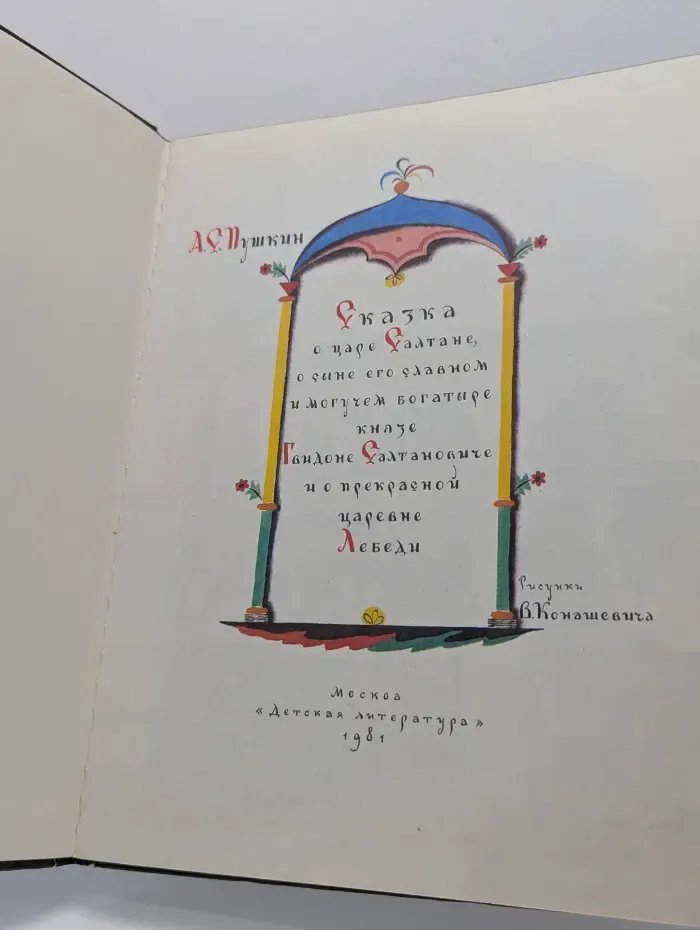 А.С. Пушкин
Сказка
о царе Салтане,
о сыне его славном
и могучем богатыре
князе
Гвидоне Салтановиче
и о прекрасной
царевне
Лебеди
Рисунки
В. Конашевича
Москва
«Детская литература»
1981